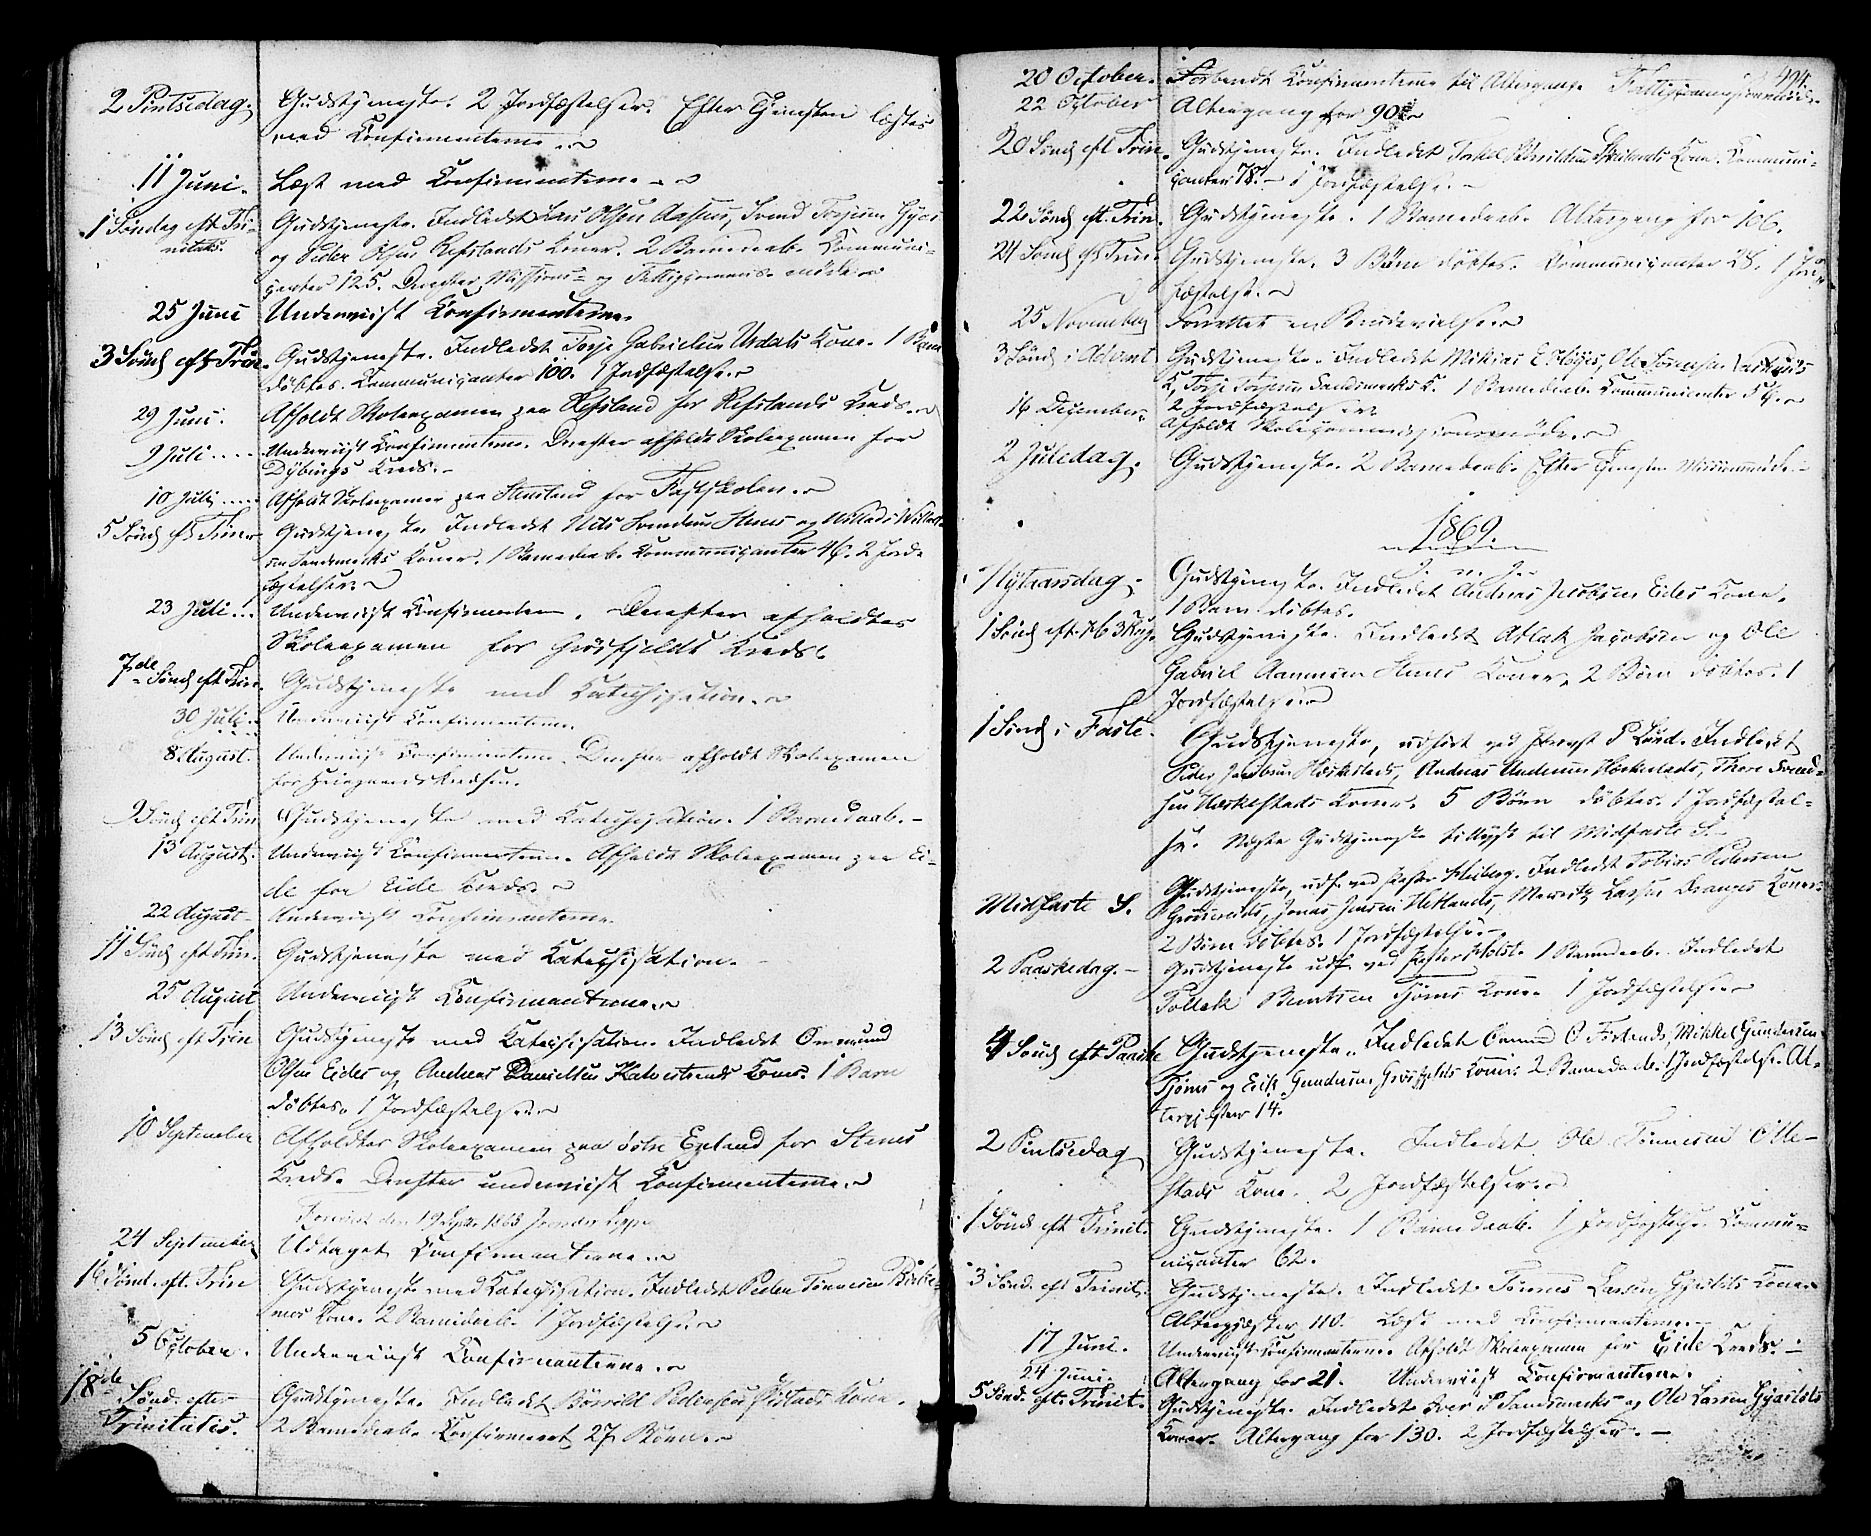 2 Pintsedag. Gudstjeneste. 2 Jordfæstelser. Efter Tjenesten læstes
med Konfirmanterne
11 Juni. Læst med Konfirmanterne
1 Søndag eft Tri- Gudstjeneste. Indledet Lars Olsen Svend Torjesen
nitatis. og Peder Olsen Refslands Koner. 2 Barnedaab. Kommuni-
ganter 125. Derefter Missions- og Fattigkommis. møde
25 Juni Underviist Konfirmanterne
3 Sönd eft Trin. Gudstjeneste. Indledet Torje Gabrielsen Urdals Kone. 1 Barn
döbtes. Kommuniganter 100. 1 Jordfæstelse
29 Juni. Afholdt Skoleexamen paa Refsland for Refslands Kreds.
9 Juli Underviist Konfirmanterne. Derefter afholdt Skoleexamen for
Dybings Kreds.
10 Juli Afholdt Skoleexamen paa for Fastskolen.
5 Sönd eft Trin. Gudstjeneste Indledet Nils Svendsen og
Sandsmarks Koner. 1 Barnedaab. Kommuniganter 46. 2 Jord-
fæstelser.
23 Juli Underviist Konfirmanterne. Derefter afholdtes
Skoleexamen for Grösfjeldt Kreds.
7de Sönd eft Trin. Gudstjeneste med Katechisation.
30 Juli Underviist Konfirmanterne.
8 August. Underviist Konfirmanterne. Derefter afholdt Skoleexamen
for
9 Sönd eft Trin Gudstjeneste med Katechisation. 1 Barnedaab.
13 August. Underviist Konfirmanterne. Afholdt Skoleexamen paa Ei-
de for Eide Kreds.
22 August Underviist Konfirmanterne.
11 Sönd eft Trin. Gudstjeneste med Katechisation.
25 August Underviist Konfirmanterne
13 Sönd eft Trin Gudstjeneste med Katechisation. Indledet Ommund
Olsen Eides og Andreas Danielsen Kalvestrands Koner. 1 Barn
döbtes. 1 Jordfæstelse
10 September Afholdtes Skoleexamen paa östre for
Kreds. Derefter underviist Konfirmanterne.
den 19 Sept. 1868
24 September Udtaget Konfirmanterne
16 Sönd. eft. Trin Gudstjeneste med Katechisation. Indledet Peder Tönnesen
Kone. 2 Barnedaab. 1 Jordfæstelse
5 October. Underviist Konfirmanterne
18de Sönd. efter Gudstjeneste. Indledet Pedersen Kone.
Trinitatis. 2 Barnedaab. Konfirmeret 27 Börn.
494
20 October. Forberedt Konfirmanterne til Altergang. Fattigkommissionsmöde.
22 October Altergang for 90
20 Sönd eft Trin. Gudstjeneste. Indledet Kone. Kommuni-
ganter 78. 1 Jordfæstelse.
22 Sönd eft. Trin. Gudstjeneste. 1 Barnedaab. Altergang for 106.
24 Sönd eft Trin. Gudstjeneste. 3 Börn döbtes. Kommuniganter 28. 1 Jord-
fæstelse.
25 November Forrettet en Brudevielse
3 Sönd i Advent Gudstjeneste. Indledet Mikias E. Ole Sörensen
K, Torje Torjesen Sandsmarks K. 1 Barnedaab. Kommunicanter 56.
2 Jordfæstelser
16 December. Afholdt Skolekommissionsmöde.
2 Juledag. Gudstjeneste. 2 Barnedaab. Efter Tjenesten Missionsmöde.
1869.
Nytaarsdag. Gudstjeneste. Indledet Andreas Jacobsen Eides Kone.
1 Barn döbtes.
1 Sönd eft. H 3 Kong. Gudstjeneste. Indledet Aslak Jacobsen og Ole
Gabriel Aanensen Koner. 2 Börn döbtes. 1
Jordfæstelse
1 Sönd i Faste. Gudstjeneste, udfört ved Provst Lund. Indledet
Peder Jacobsen Hæskestads, Andreas Andersen Hæskestads, Thore Svend-
sen Hæskestads Koner. 5 Börn döbtes. 1 Jordfæstel-
se. Næste Gudstjeneste tillyst til Midfaste S.
Midfaste S. Gudstjeneste, udf. ved Pastor Heiberg. Indledet Tobias Pedersen
Jonas Jensen Hetlands, Mauritz Larsen Dranges Koner.
2 Börn döbtes. 1 Jordfæstelse.
2 Paaskedag. Gudstjeneste udf. ved Pastor Holst. 1 Barnedaab. Indledet
Tollak Berntsen Tjörns Kone. 1 Jordfæstelse
4 Sönd eft Paaske Gudstjeneste. Indledet Ommund O Mikkel Gundersen
Tjörns og Erik Gundersen Grösfjelds Koner. 2 Barnedaab. 1 Jordfæstelse. Al-
tergjester 14.
2 Pintsedag Gudstjeneste. Indledet Ole Tönnesen Otte-
stads Kone. 2 Jordfæstelser.
1 Sönd eft Trinit. Gudstjeneste. 1 Barnedaab. 1 Jordfæstelse. Kommu-
niganter 62.
3 Sönd. eft Trinit. Gudstjeneste. Indledet Tönnes Larsen Kone.
Altergjæster 110. Læst med Konfirmanterne.
17 Juni. Underviist Konfirmanterne. Afholdt Skoleexamen for Eide Kreds.
24 Juni. Altergang for 21. Underviist Konfirmanterne.
5 Sönd. eft. Trinit. Gudstjeneste. Indledet Iver P Sandsmarks og Ole Larsen
Koner. Altergang for 130. 2 Jordfæstelser.